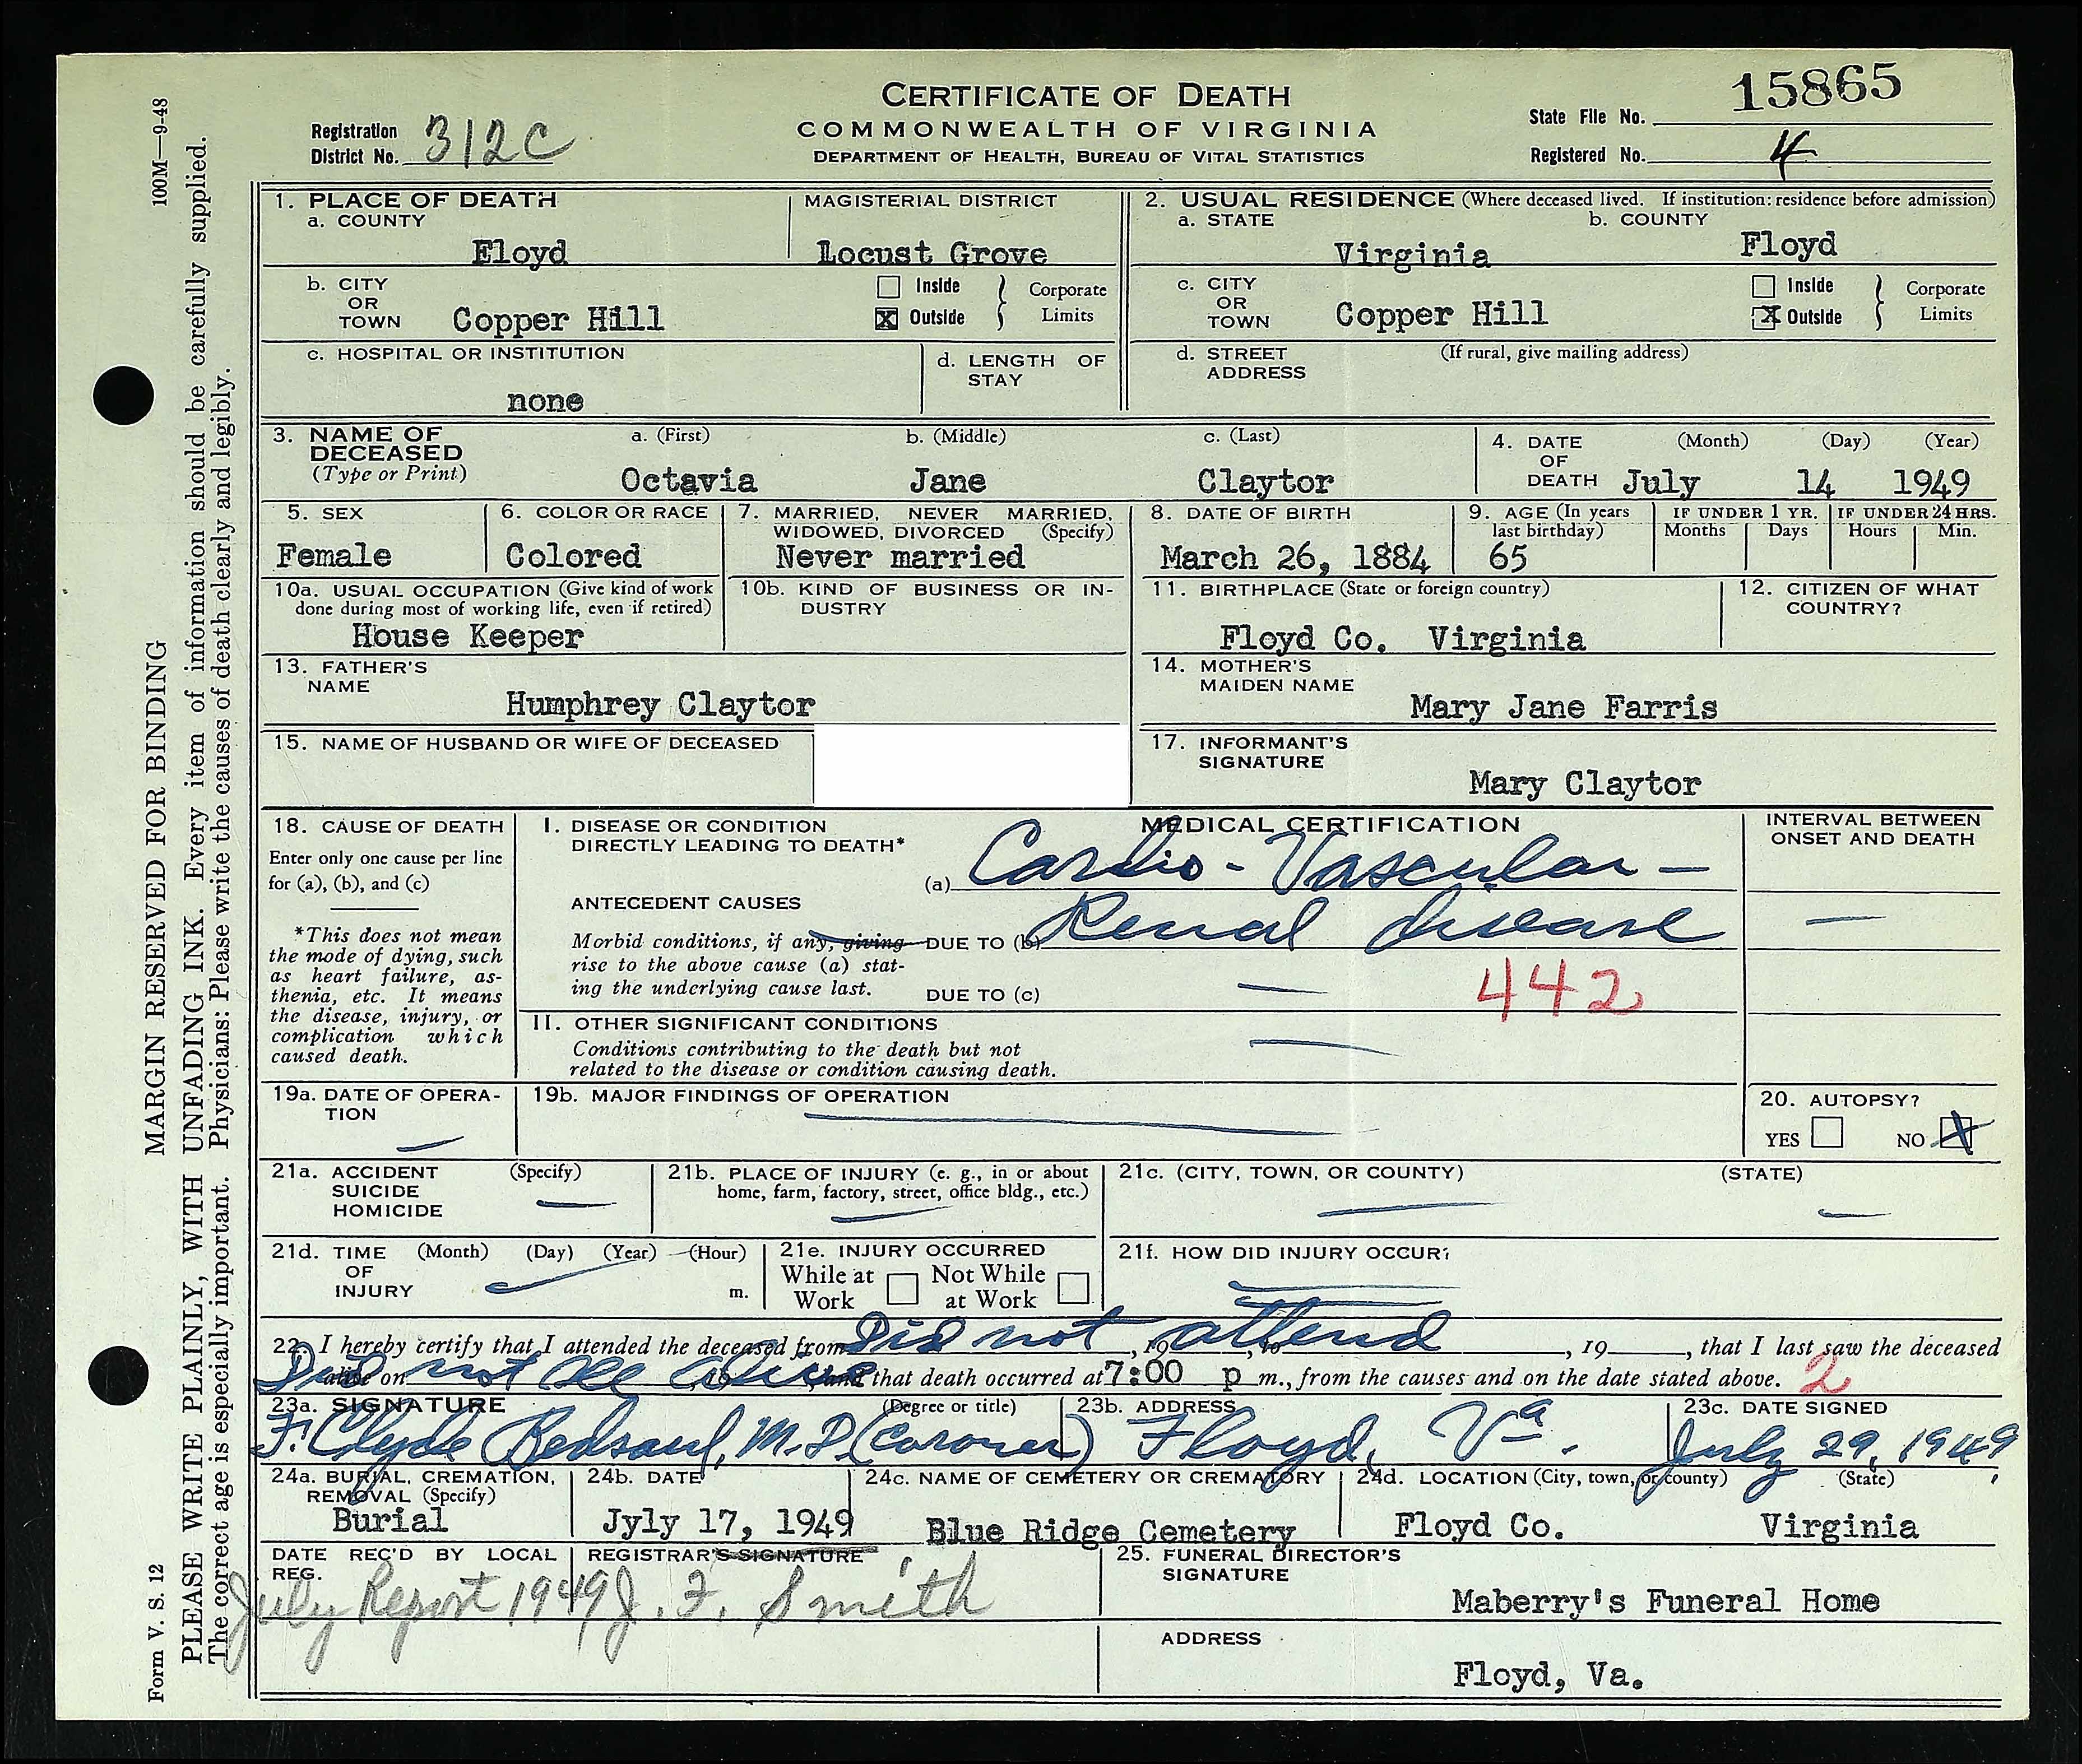 100M—9-48
CERTIFICATE OF DEATH
COMMONWEALTH OF VIRGINIA
DEPARTMENT OF HEALTH, BUREAU OF VITAL STATISTICS
Registration District No. 312C
State File No. 15865
Registered No. 4
1. PLACE OF DEATH
a. COUNTY Floyd
MAGISTERIAL DISTRICT Locust Grove
2. USUAL RESIDENCE (Where deceased lived. If institution: residence before admission)
a. STATE Virginia
b. COUNTY Floyd
b. CITY OR TOWN Copper Hill
Inside
X Outside
Corporate Limits
c. CITY OR TOWN Copper Hill
Inside
X Outside
Corporate Limits
c. HOSPITAL OR INSTITUTION
none
d. LENGTH OF STAY
d. STREET ADDRESS (If rural, give mailing address)
3. NAME OF DECEASED (Type or Print)
a. (First) Octavia
b. (Middle) Jane
c. (Last) Claytor
4. DATE OF DEATH (Month) (Day) (Year)
July 14 1949
5. SEX
Female
6. COLOR OR RACE
Colored
7. MARRIED, NEVER MARRIED, WIDOWED, DIVORCED (Specify)
Never married
8. DATE OF BIRTH
March 26, 1884
9. AGE (In years last birthday)
65
IF UNDER 1 YR.
Months Days
IF UNDER 24 HRS.
Hours Min.
10a. USUAL OCCUPATION (Give kind of work done during most of working life, even if retired)
House Keeper
10b. KIND OF BUSINESS OR INDUSTRY
11. BIRTHPLACE (State or foreign country)
Floyd Co. Virginia
12. CITIZEN OF WHAT COUNTRY?
13. FATHER'S NAME
Humphrey Claytor
14. MOTHER'S MAIDEN NAME
Mary Jane Farris
15. NAME OF HUSBAND OR WIFE OF DECEASED
17. INFORMANT'S SIGNATURE
Mary Claytor
18. CAUSE OF DEATH
Enter only one cause per line for (a), (b), and (c)
*This does not mean the mode of dying, such as heart failure, asthenia, etc. It means the disease, injury, or complication which caused death.
MEDICAL CERTIFICATION
I. DISEASE OR CONDITION DIRECTLY LEADING TO DEATH*
(a) Cardio-Vascular-
ANTECEDENT CAUSES
Morbid conditions, if any, giving rise to the above cause (a) stating the underlying cause last.
DUE TO (b) Renal disease
DUE TO (c) —
442
INTERVAL BETWEEN ONSET AND DEATH
—
II. OTHER SIGNIFICANT CONDITIONS
Conditions contributing to the death but not related to the disease or condition causing death.
—
19a. DATE OF OPERATION
—
19b. MAJOR FINDINGS OF OPERATION
—
20. AUTOPSY?
YES NO X
21a. ACCIDENT SUICIDE HOMICIDE (Specify)
—
21b. PLACE OF INJURY (e. g., in or about home, farm, factory, street, office bldg., etc.)
—
21c. (CITY, TOWN, OR COUNTY) (STATE)
— —
21d. TIME OF INJURY (Month) (Day) (Year) (Hour)
m.
21e. INJURY OCCURRED
While at Work
Not While at Work
21f. HOW DID INJURY OCCUR?
—
22. I hereby certify that I attended the deceased from Did not attend, 19, to , 19, that I last saw the deceased
alive on Did not see alive, and that death occurred at 7:00 p m., from the causes and on the date stated above. 2
23a. SIGNATURE (Degree or title)
F. Clyde Bedsaul, M.D. (Coroner)
23b. ADDRESS
Floyd, Va.
23c. DATE SIGNED
July 29, 1949
24a. BURIAL, CREMATION, REMOVAL (Specify)
Burial
24b. DATE
Jyly 17, 1949
24c. NAME OF CEMETERY OR CREMATORY
Blue Ridge Cemetery
24d. LOCATION (City, town, or county) (State)
Floyd Co. Virginia
DATE REC'D BY LOCAL REG.
July Report 1949
REGISTRAR'S SIGNATURE
J. F. Smith
25. FUNERAL DIRECTOR'S SIGNATURE
Maberry's Funeral Home
ADDRESS
Floyd, Va.
MARGIN RESERVED FOR BINDING
PLEASE WRITE PLAINLY, WITH UNFADING INK. Every item of information should be carefully supplied.
The correct age is especially important. Physicians: Please write the causes of death clearly and legibly.
Form V. S. 12